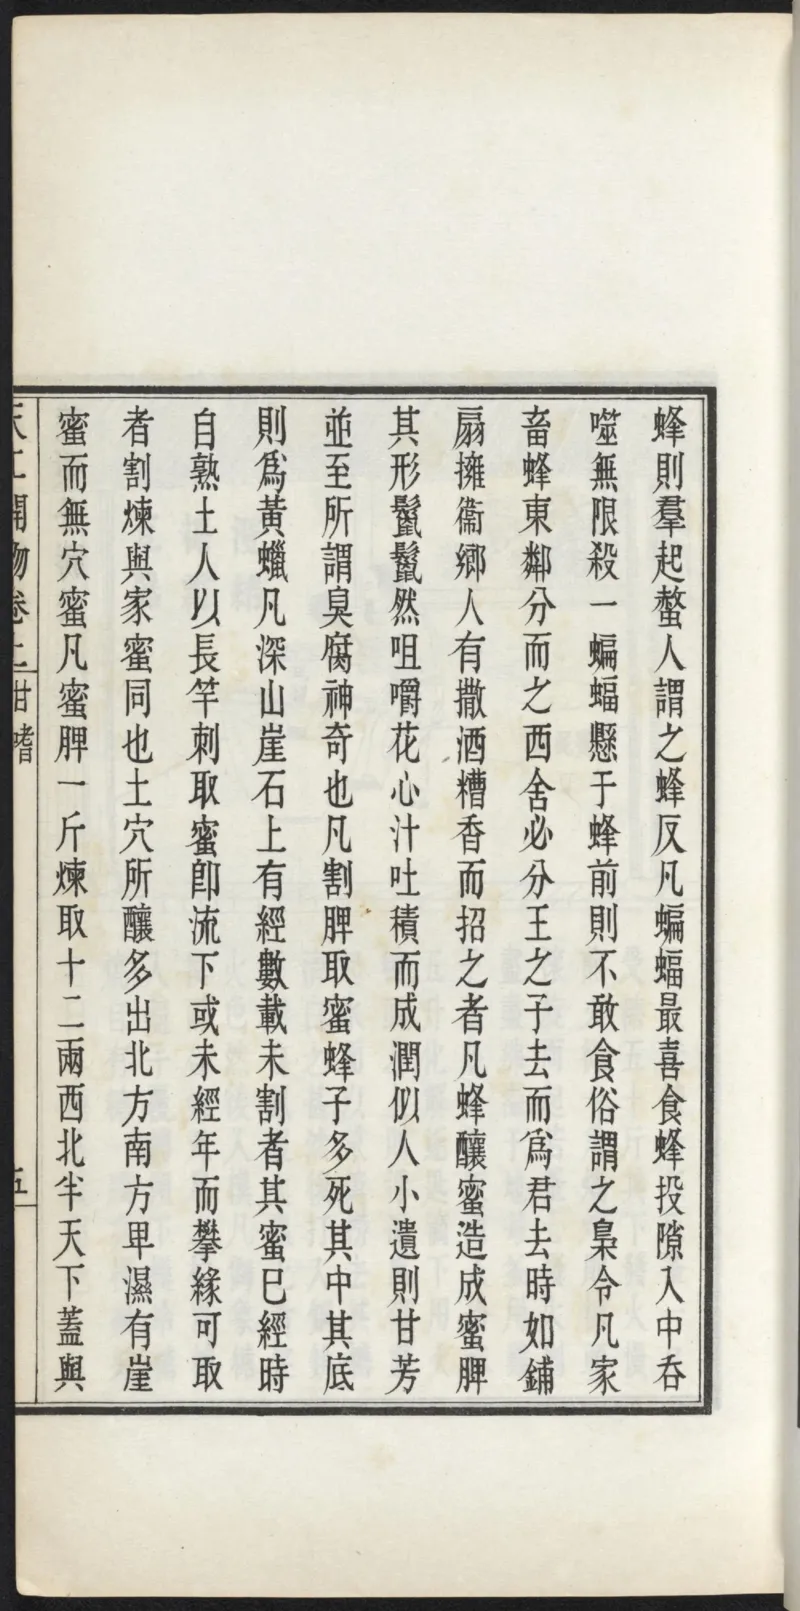 蜂則羣起螫人謂之蜂反凡蝙蝠最喜食蜂投隙入中吞
噬無限殺一蝙蝠懸于蜂前則不敢食俗謂之梟令凡家
畜蜂東鄰分而之西舍必分王之子去而爲君去時如鋪
扇擁衞鄉人有撒酒糟香而招之者凡蜂釀蜜造成蜜脾
其形鬣鬣然咀嚼花心汁吐積而成潤似人小遺則甘芳
並至所謂臭腐神奇也凡割脾取蜜蜂子多死其中其底
則爲黃蠟凡深山崖石上有經數載未割者其蜜已經時
自熟土人以長竿刺取蜜卽流下或未經年而攀緣可取
者割煉與家蜜同也土穴所釀多出北方南方卑濕有崖
蜜而無穴蜜凡蜜脾一斤煉取十二兩西北半天下蓋與
天工開物卷上 甘嗜 五